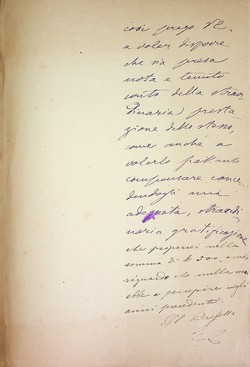 così prego V.E.
a voler disporre
che sia presa
nota e tenuto
conto della straor
dinaria presta
zione dello stesso,
come anche a
volerlo
compensare conce
dendogli una
adeguata, straordi
naria gratificazione
che proporrei nella
somma di L 200, avuto
riguardo che nulla
ebbe a percepire negli
anni precedenti.
Il Prefetto